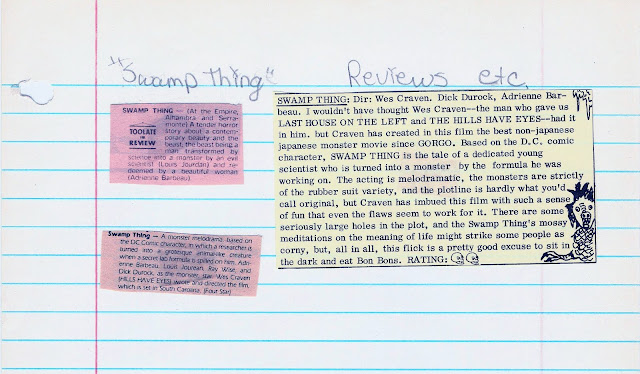 "Swamp Thing" Reviews etc.
SWAMP THING — (At the Empire,
Alhambra and Serra-
monte) A tender horror
story about a contem-
porary beauty and the
beast, the beast being a
man transformed by
science into a monster by an evil
scientist (Louis Jourdan) and re-
deemed by a beautiful woman
(Adrienne Barbeau).
TOO LATE
TO
REVIEW
Swamp Thing — A monster melodrama, based on
the DC Comic character, in which a researcher is
turned into a grotesque animal-like creature
when a secret lab formula is spilled on him. Adri-
enne Barbeau, Louis Jourdan, Ray Wise, and
Dick Durock, as the monster, star. Wes Craven
(HILLS HAVE EYES) wrote and directed the film,
which is set in South Carolina. (Four Star)
SWAMP THING: Dir: Wes Craven. Dick Durock, Adrienne Bar-
beau. I wouldn't have thought Wes Craven--the man who gave us
LAST HOUSE ON THE LEFT and THE HILLS HAVE EYES--had it
in him. but Craven has created in this film the best non-japanese
japanese monster movie since GORGO. Based on the D.C. comic
character, SWAMP THING is the tale of a dedicated young
scientist who is turned into a monster by the formula he was
working on. The acting is melodramatic, the monsters are strictly
of the rubber suit variety, and the plotline is hardly what you'd
call original, but Craven has imbued this film with such a sense
of fun that even the flaws seem to work for it. There are some
seriously large holes in the plot, and the Swamp Thing's mosay
meditations on the meaning of life might strike some people as
corny, but, all in all, this flick is a pretty good excuse to sit in
the dark and eat Bon Bons. RATING: